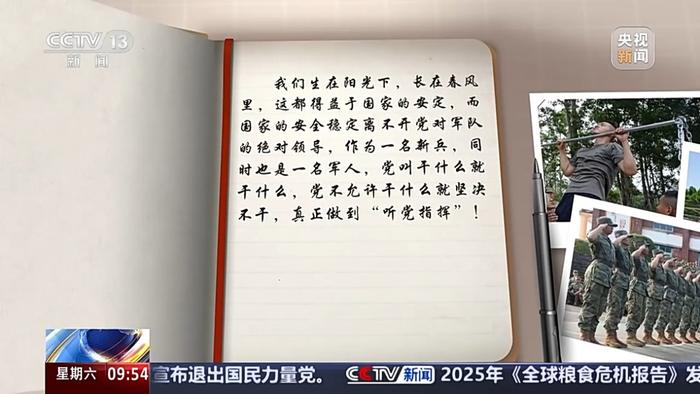 CCTV 13
新闻
央视
新闻
我们生在阳光下，长在春风
里，这都得益于国家的安定，而
国家的安全稳定离不开党对军队
的绝对领导，作为一名新兵，同
时也是一名军人，党叫干什么就
干什么，党不允许干什么就坚决
不干，真正做到“听党指挥”！
星期六 09:54 宣布退出国民力量党。 CCTV新闻 2025年《全球粮食危机报告》发